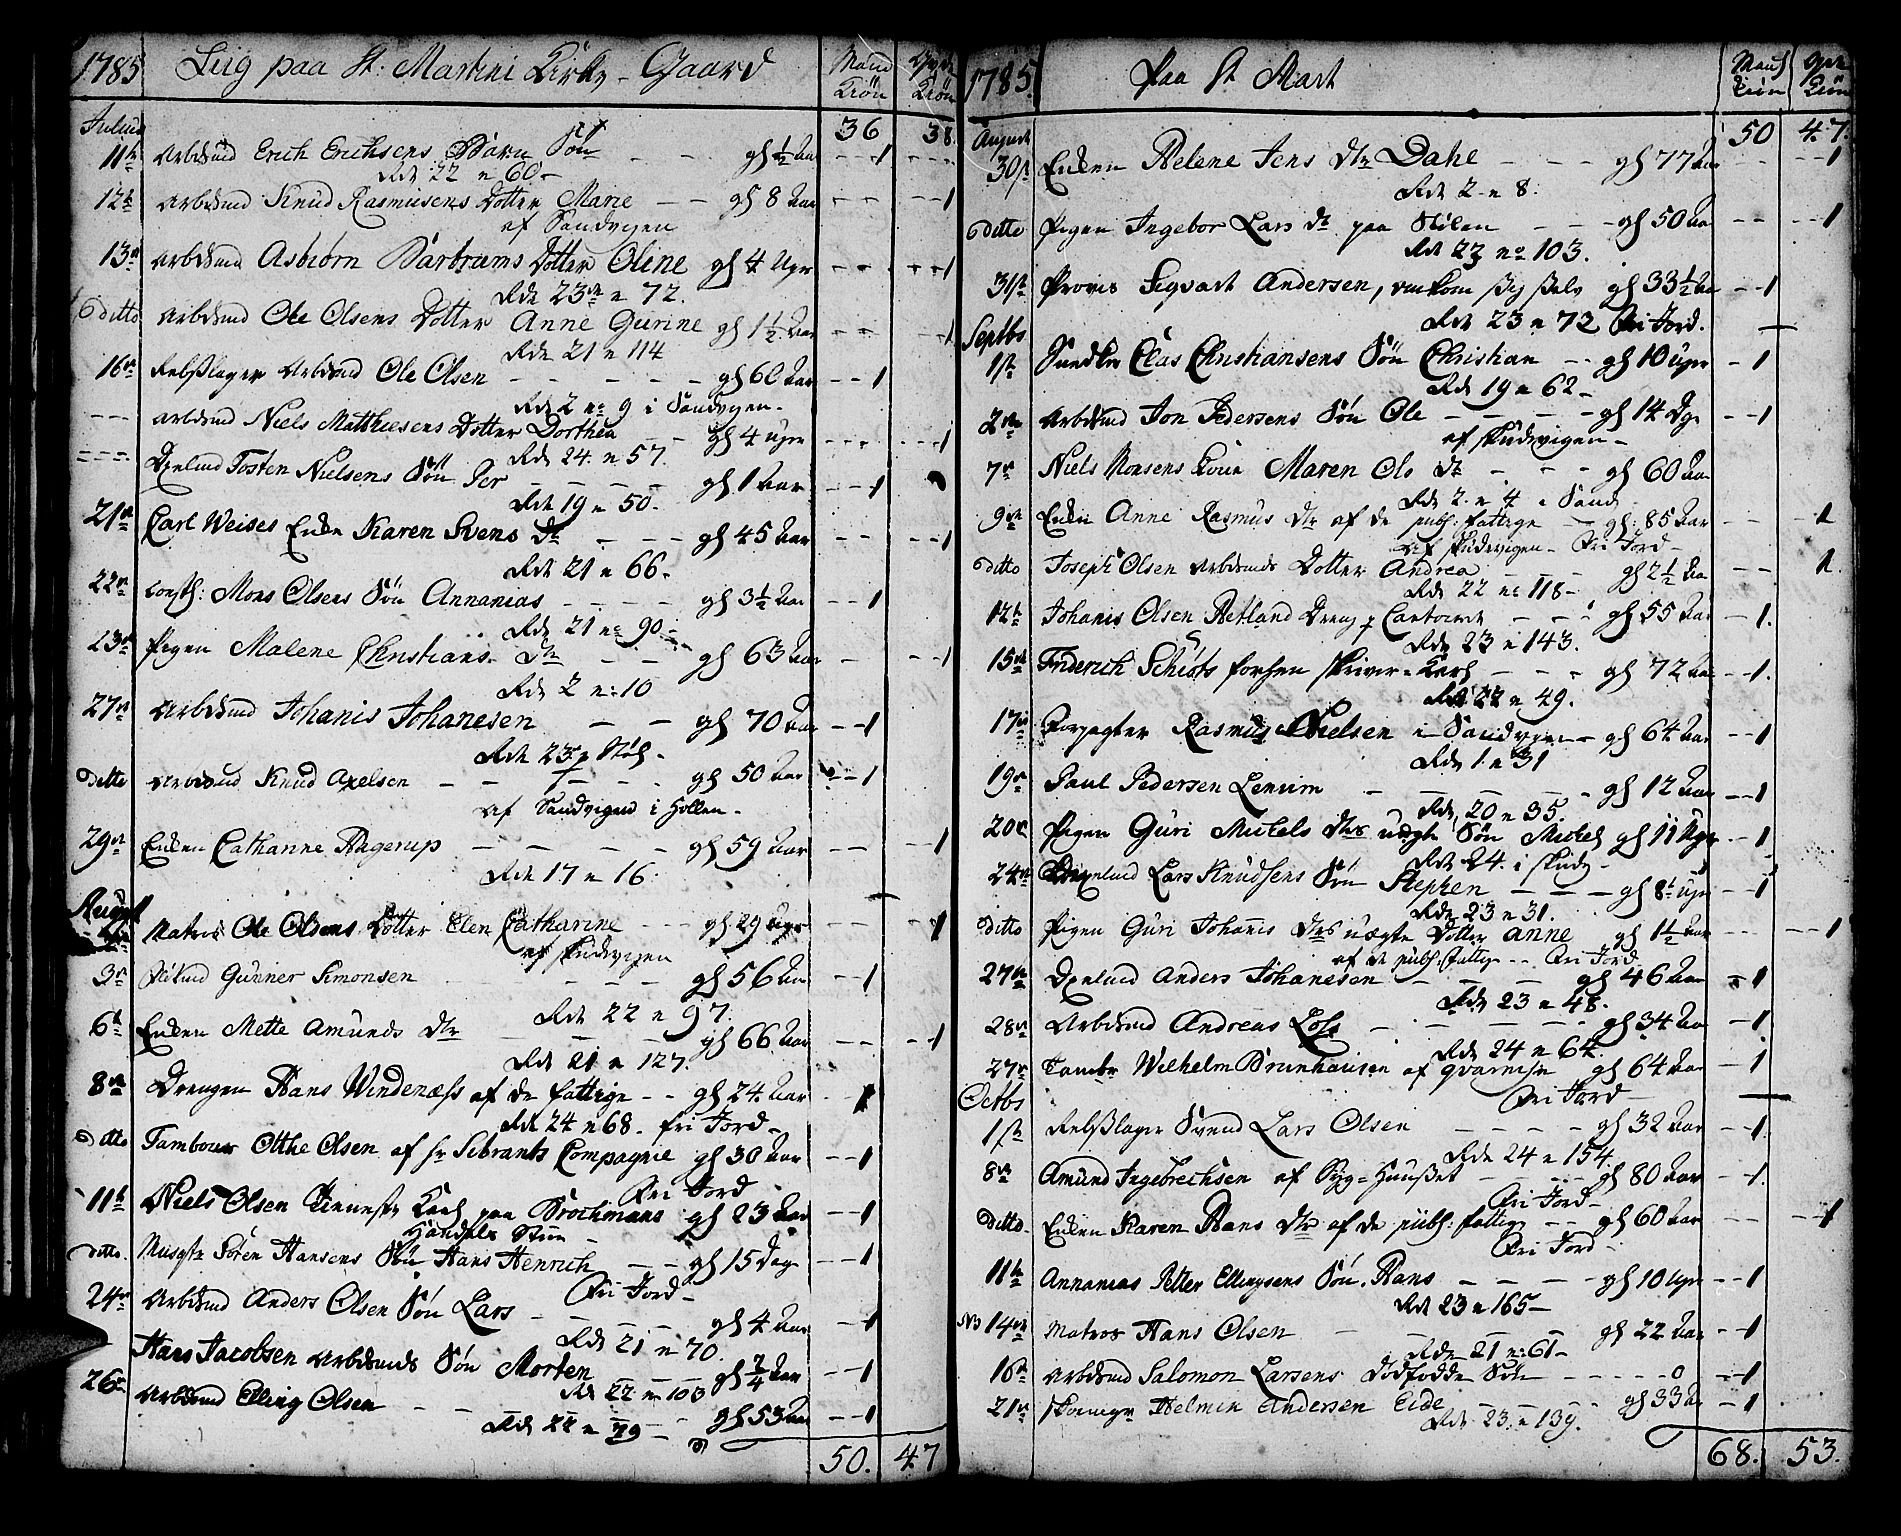 1785 Liig paa St: Martini Kirke-Gaard Mand Kiön Qvin Kiön
Julius 36 38
11te Arbdsmd Erich Erichsens Barn Søn - - gl ½ Aar - - 1
Rde 22 n 60 -
12te Arbdsmd Knud Rasmusens Dotter Marie - - gl 8 Aar - - - 1
af Sandvigen
13de Arbdsmd Asbiørn Bartrums Dotter Oline gl 4 Uger - - - 1
Rde 23de n 72.
Ditto Arbdsmd Ole Olsens Dotter Anne Gurine gl 1½ Aar - - 1
Rde 21 n 114
16de Rebslager Arbdsmd Ole Olsen - - - - gl 60 Aar - - 1
Rde 2 no 9 i Sandvigen -
- - - Arbdsmd Niels Matthiesens Dotter Dorthea - - gl 4 uger - - - 1
Rde 24. n 57.
- - - Tosten Nielsens Søn Per - - - - gl 1 Aar - - 1
Rde 19 n 50.
21de Carl Weises Enke Karen Svens Dr - - - gl 45 Aar - - - 1
Rde 21 n 66.
22de Mons Olsens Søn Annanias - - - - gl 3½ Aar - - 1
Rde 21 no 90.
23de Pigen Malene Christians Dtr - - gl 63 Aar - - - 1
Rde 2 n: 10
27de Arbdsmd Johanis Johanesen - - gl 70 Aar - - 1
Rde 23
Ditto Arbdsmd Knud Axelsen - - - gl 50 Aar - - 1
af Sandvigen i Hollen -
29de Enken Cathanne Hagerup - - - - gl 59 Aar - - 1
Rde 17 n 16.
August
Matros Ole Olsens Dotter Elen Catharine - - - gl 29 uger - - - 1
af Skudevigen
3de Gunner Simonsen - - - gl 56 Aar - - 1
Rde 22 n 97.
6te Enken Mette Amunds Dtr - - - - gl 66 Aar - - - 1
Rde 21 n 127.
8de Drengen Hans Windenæss af de fattige - - gl 24 Aar - - 1
Rde 24 n 68. fri Jord -
Ditto Tambour Otthe Olsen af hr Sibrants Compagnie gl 30 Aar - - 1
Fri Jord
11te Niels Olsen Tieneste Karl paa Brochmans gl 23 Aar - - 1
Handels Stue -
ditto. Musqtr Sören Hansens Søn Hans Henrich - - gl 15 Dage - - 1
Fri Jord -
24de Arbdsmd Anders Olsen Søn Lars - - - - gl 4 Aar - - 1
Rde 21 n 70.
Hans Jacobsen Arbdsmds Søn Morten - - - gl ¾ Aar - - 1
Rde 22 n 103
26de Arbdsmd Elling Olsen - - - - gl 53 Aar - - 1
Rde 22 n 79 -
50. 47
1785. Paa St Mart Mands Kiön Qvin Kiön
August 50 47.
30te Enken Helene Jens Dtr Dahl - - - gl 77 Aar - - - 1
Rde 2 n 8.
Ditto Pigen Ingebor Lars Dr paa Stölen - - - gl 50 Aar - - - - 1
Rde 23 no 103.
31te Provis Sigvart Andersen, omkom sig selv gl 33½ Aar - - 1
Rde 23 n 72 Fri Jord.
Septbs
1ste Clas Christiansens Søn Christian - - gl 10 uger - 1
Rde 19 n 62 -
2den Arbdsmd Jon Pedersens Søn Ole - - - - gl 14 Dge - - 1
af Skudevigen -
7de Niels Monsens Kone Maren Ols Dr - - - gl 60 Aar
Rde 2. n 4 i Sand
9de Enken Anne Rasmus Dtr af de publ. fattige - gl: 85 Aar - - - 1
af Skudevigen - Fri Jord -
Ditto Joseph Olsen Arbdsmds Dotter Andrea - - - gl 2½ Aar - - 1
Rde 22 n: 118 -
12te Johanis Olsen Hetland Dreng p Contoiret - - gl 55 Aar - - 1.
Rde 23 n 143.
15de Friderich Schiöts forhen Skriver-Karl - - - gl 72 Aar - - 1.
Rde 22 n 49.
17de Forpagter Rasmus Nielsen i Sandvigen - gl 64 Aar - - 1
Rde 1. n 31
19de Paul Pedersen Lemum - - - - gl 12 Aar - - 1
Rde 20 n 35.
20de Pigen Guri Mickels Dtrs uægte Søn Mickel gl 11 Uger - - 1
Rde 24. i Skudv -
24de Lars Knudsens Søn Stephen - - - gl 8½ uger - - 1
Rde 23 n 31.
Ditto Pigen Guri Johanis Dtrs uægte Dotter Anne gl 1½ Aar - - - - 1
af de publ: fattige - - - Fri Jord
27de Anders Johanesen - - - gl 46 Aar - - 1
Rde 23 n 48.
28de Arbdsmd Andreas Lofs - - - - - gl 34 Aar - 1
Rde 24 n 64.
27de Tambr Wilhelm Brunhausen af gl 64 Aar - 1
Octbs Fri Jord -
1ste Rebslager Svend Lars Olsen - - - - gl 32 Aar - - 1.
Rde 24 n 154.
8de Amund Ingebrechsen af Syge-Huuset - - - gl 80 Aar - 1.
Fri Jord -
Ditto Enken Karen Hans Dtr af de publ: fattige - - gl 60 Aar - - - - 1
Fri Jord -
11te Annanias Petter Ellingsens Søn Hans - - - - gl 10 uger - - 1
Rde 23 n 165 -
NB 14de Matros Hans Olsen - - - - gl 22 Aar - - 1
Rde 21 n: 61 -
16de Arbdsmd Salomon Larsens Dödfödde Søn - - - - - 0 - - 1
21de Helmik Andersen Eide gl 33 Aar - 1
Rde 23. n 139.
68. 53.